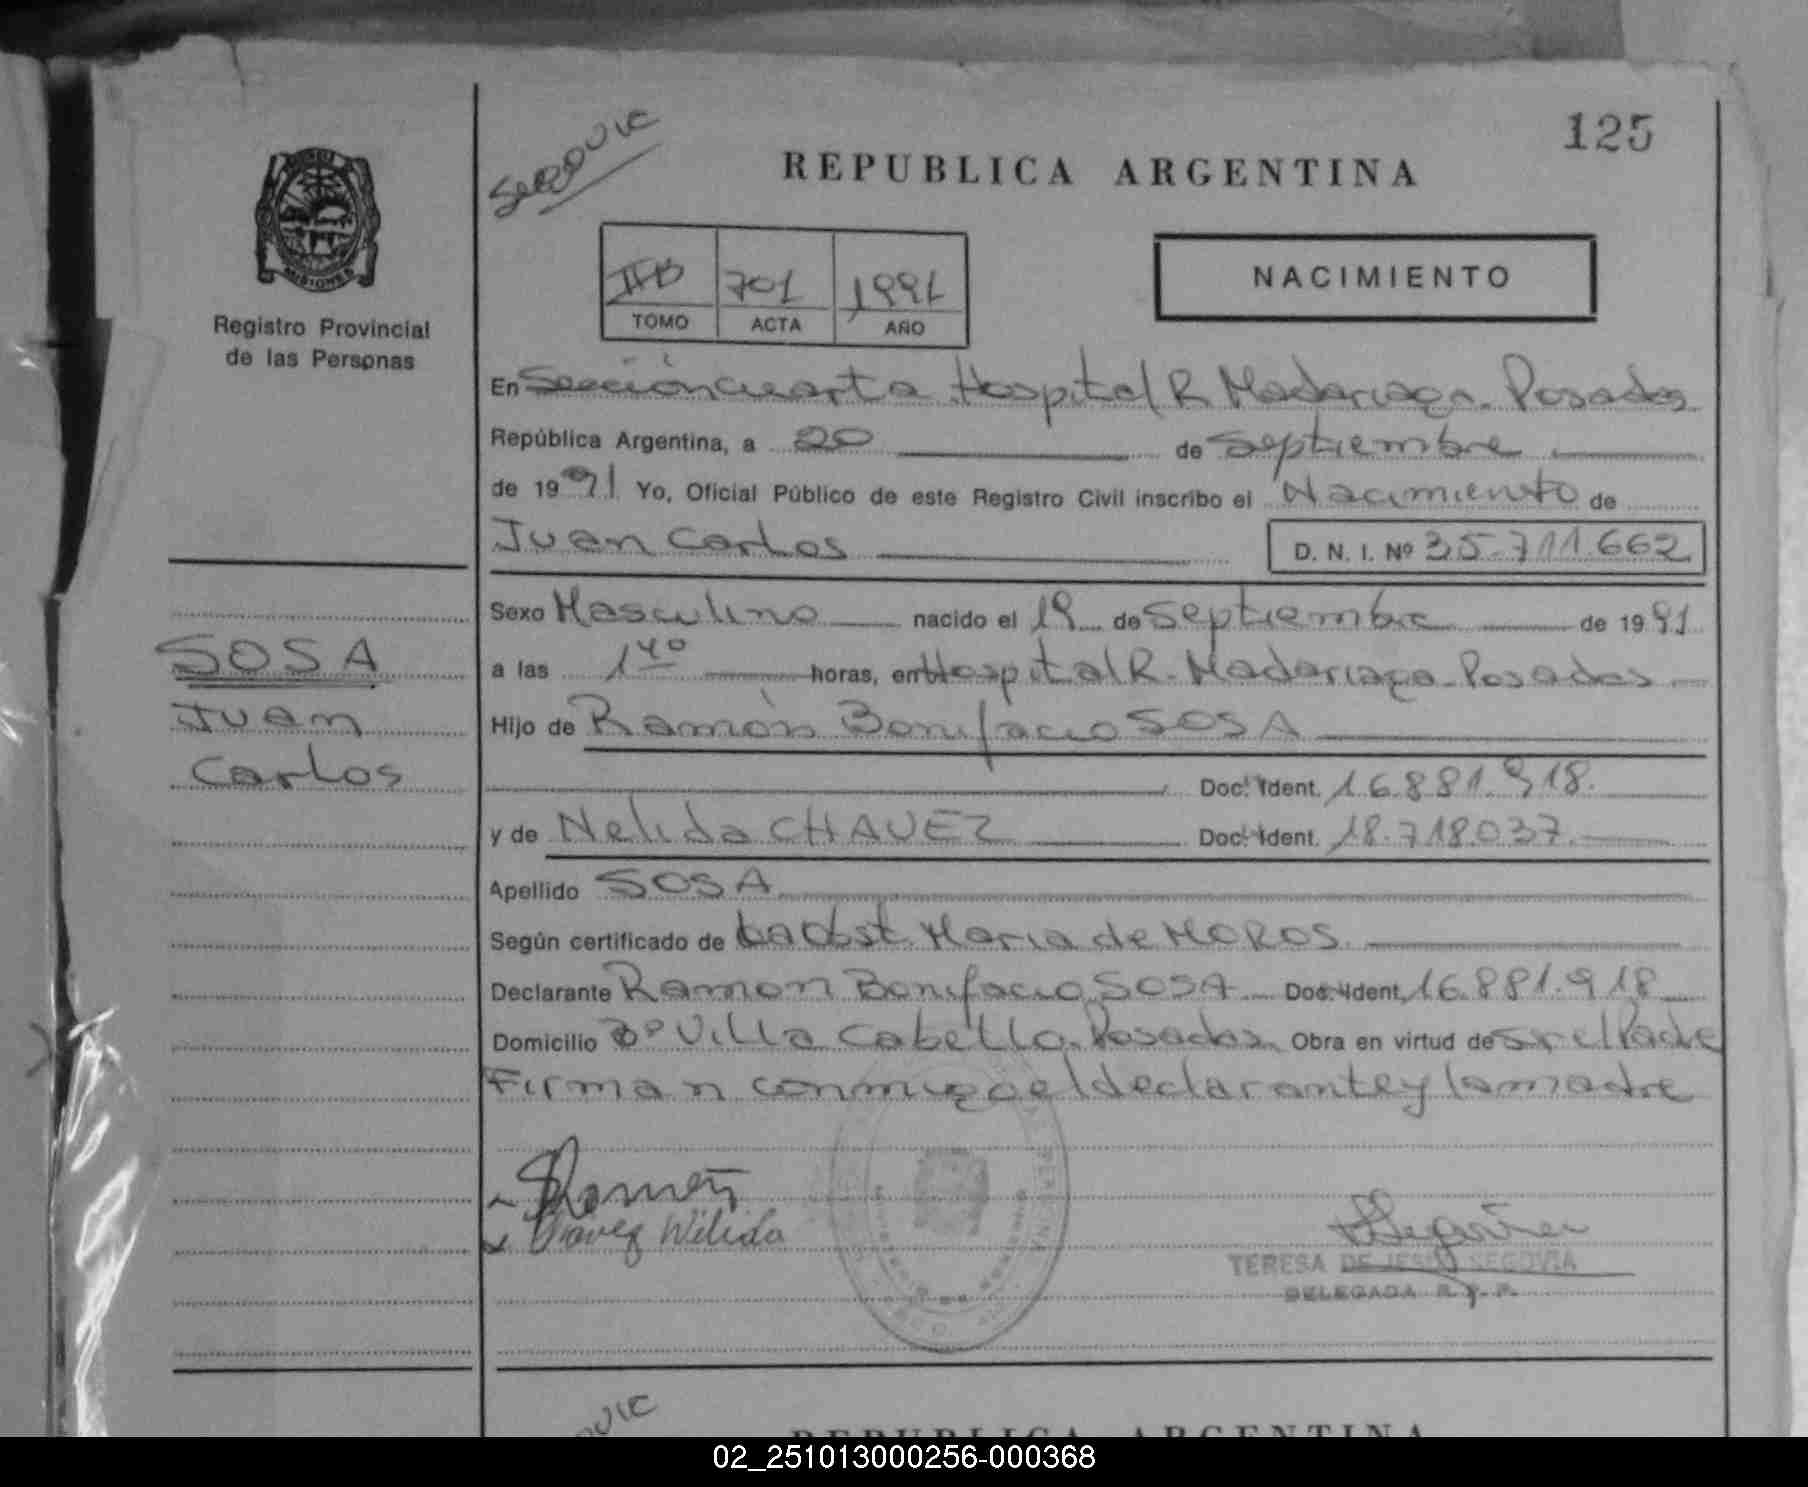 125
REPUBLICA ARGENTINA
NACIMIENTO
701 1991
TOMO ACTA AÑO
MISIONES
Registro Provincial
de las Personas
En Sección cuarta Hospital R. Madariaga. Posadas
República Argentina, a 20 de Septiembre
de 1991 Yo, Oficial Público de este Registro Civil inscribo el Nacimiento de
Juan Carlos D. N. I. Nº 35.711.662
Sexo Masculino nacido el 19 de Septiembre de 1991
SOSA
Juan
Carlos
a las 14º horas, en Hospital R. Madariaga. Posadas
Hijo de Ramón Bonifacio SOSA
Doc. Ident. 16.881.918.
y de Nelida CHAVEZ Doc. Ident. 18.718.037.
Apellido SOSA
Según certificado de la Obst. Maria de MOROS
Declarante Ramon Bonifacio SOSA Doc. Ident. 16.881.918
Domicilio Bº Villa Cabello. Posadas. Obra en virtud de ser el Padre
Firman conmigo el declarante y la madre
Ramón
Chavez Nélida
TERESA DE JESUS SEGOVIA
DELEGADA R. P. P.
REPUBLICA ARGENTINA
02_251013000256-000368